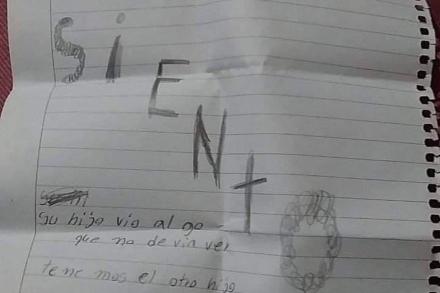 SIENTO
su hijo vio algo
que no devia ver
tenemos el otro hijo